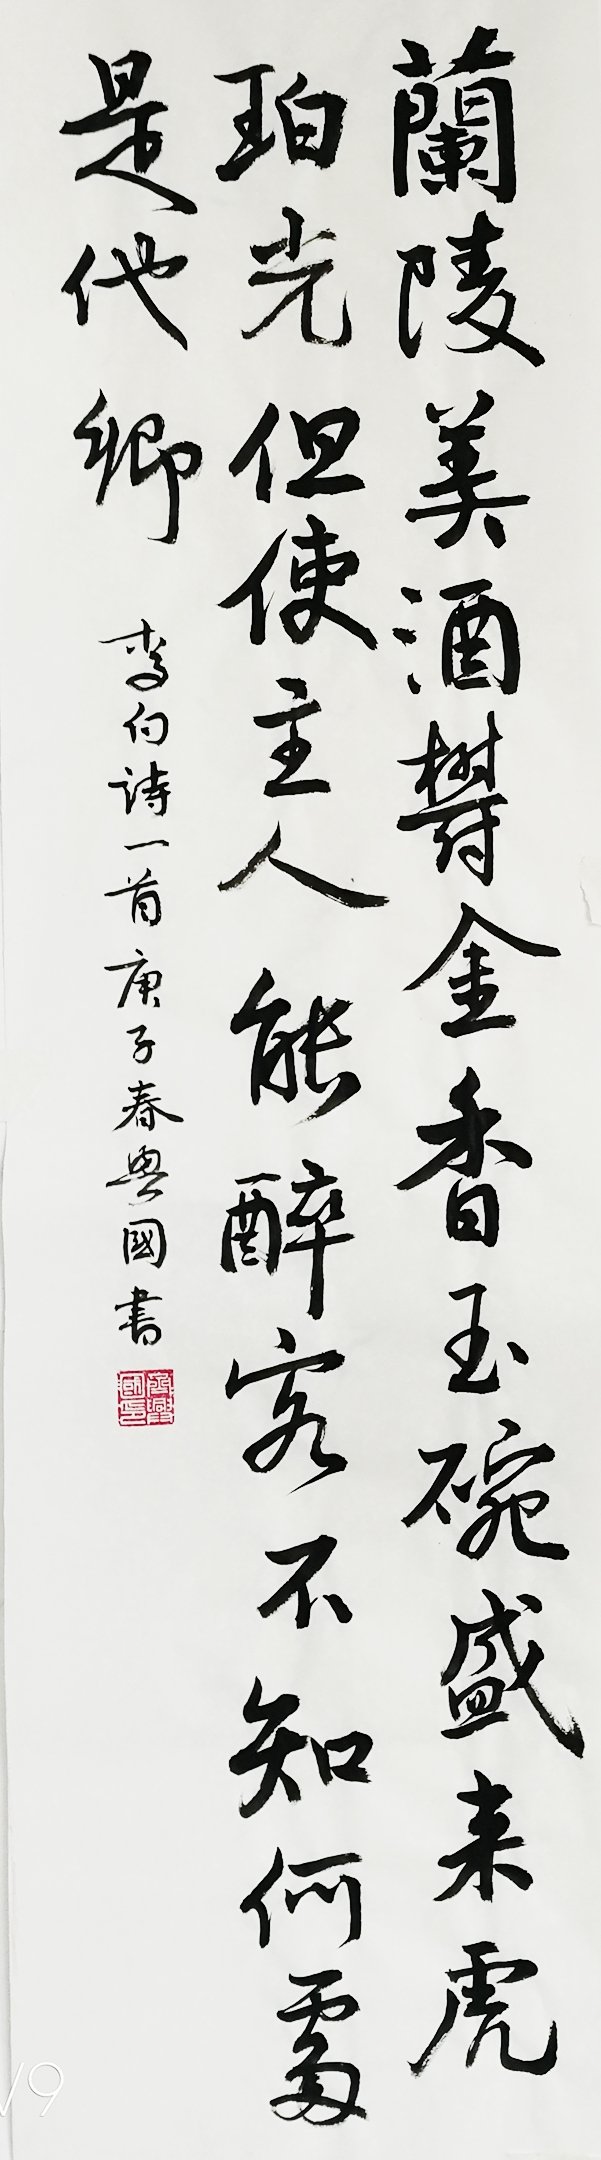 蘭陵美酒鬱金香玉碗盛来虎
珀光但使主人能醉客不知何處
是他鄉
李白詩一首庚子春興國書
V9